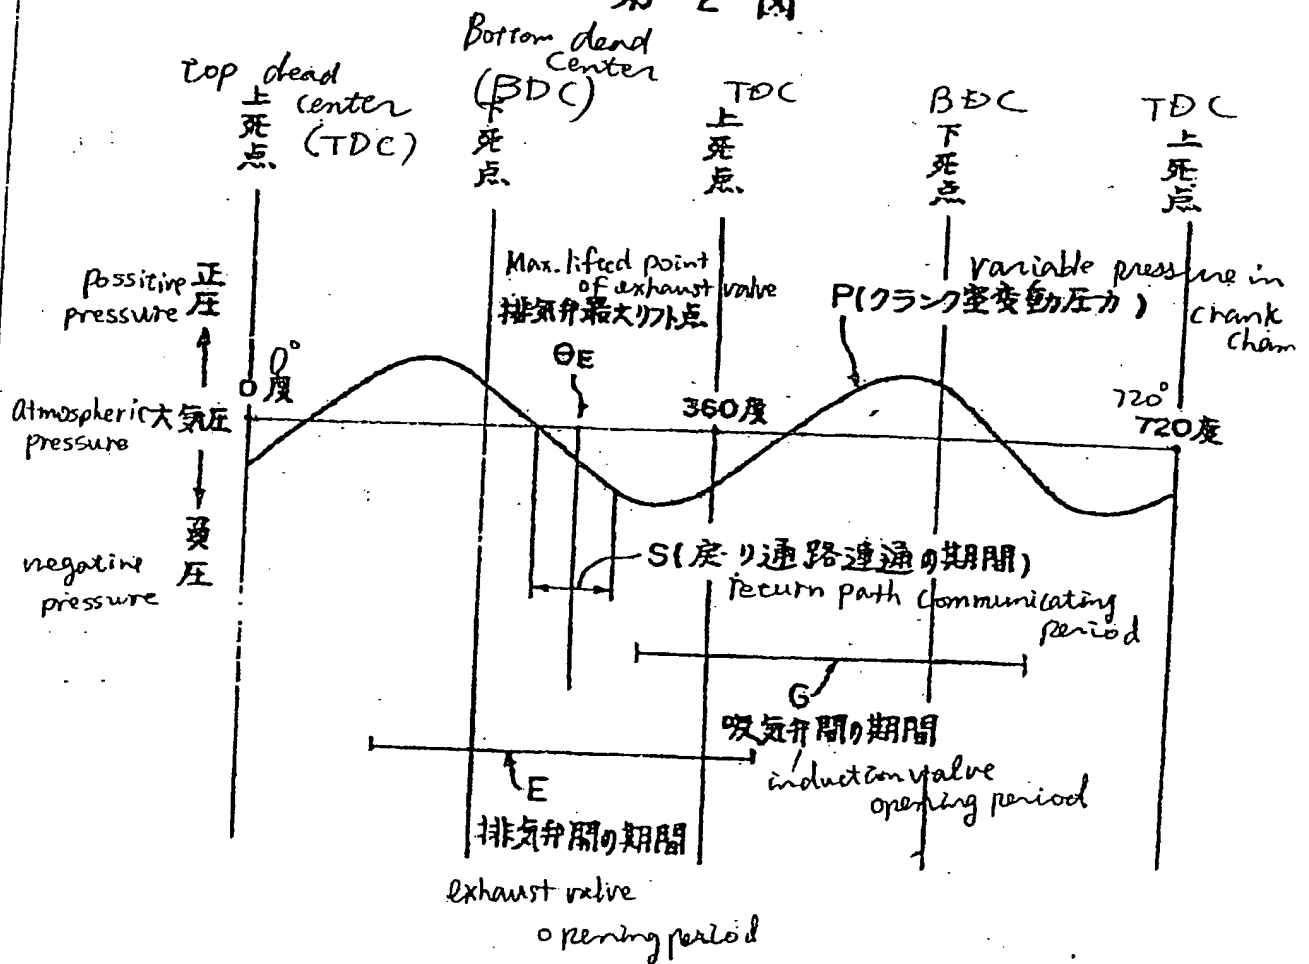 第2図
Top dead
center
(TDC)
上死点
Bottom dead
center
(BDC)
下死点
TDC
上死点
BDC
下死点
TDC
上死点
possitive
pressure
正圧
0°
0度
atmospheric
pressure
大気圧
負圧
negative
pressure
Max. lifted point
of exhaust valve
排気弁最大リフト点
θE
variable pressure in
crank
cham
P(クランク室変動圧力)
360度
720°
720度
S(戻り通路連通の期間)
return path communicating
period
G
吸気弁開の期間
induction valve
opening period
E
排気弁開の期間
exhaust valve
opening period